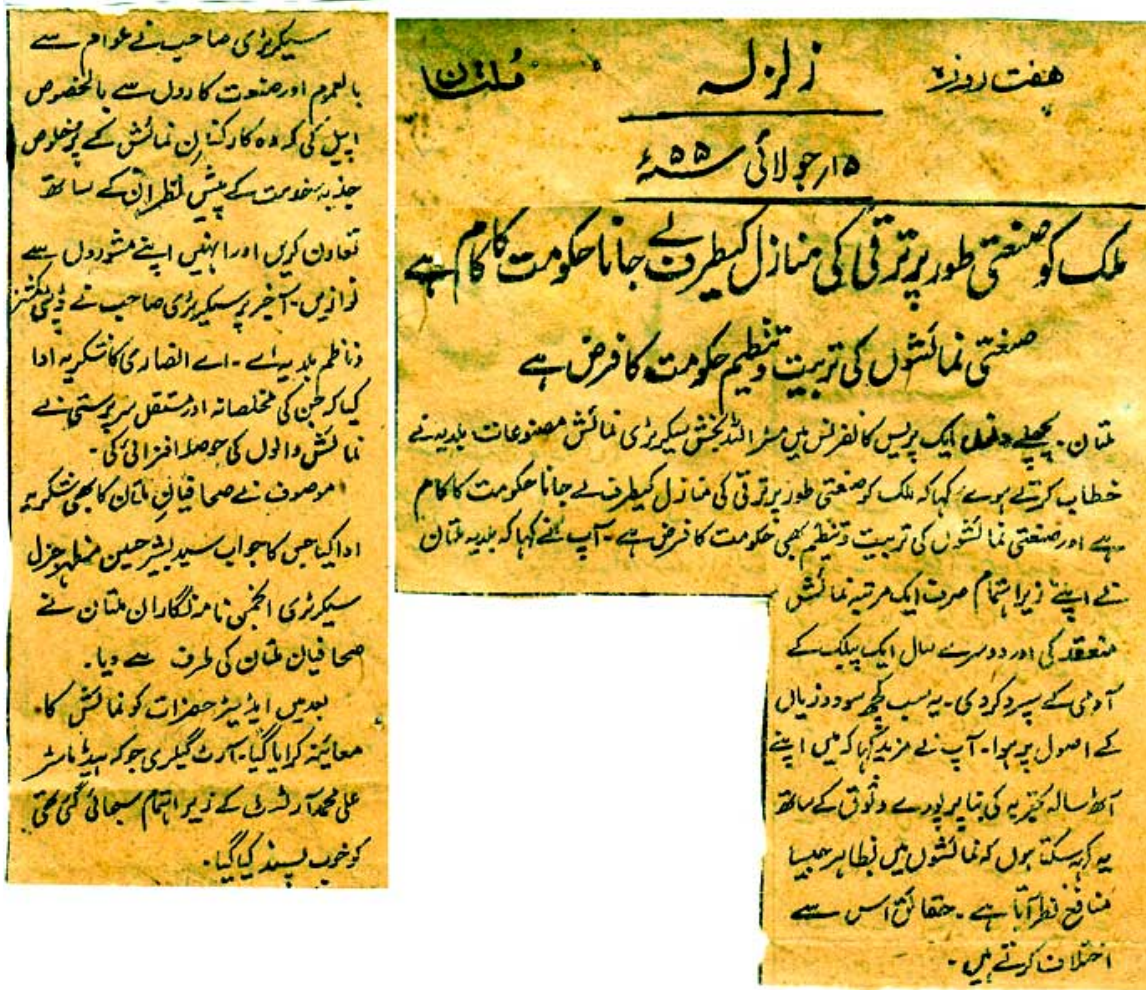 هفت روزہ زلزلہ ملتان
۱۵ر جولائی ۵۵ء
ملک کو صنعتی طور پر ترقی کی منازل کیطرف لے جانا حکومت کا کام ہے
صنعتی نمائشوں کی تربیت و تنظیم حکومت کا فرض ہے
ملتان۔ پچھلے دنوں ایک پریس کانفرنس میں مسٹر اللہ بخش سیکریٹری نمائش مصنوعات بلدیہ نے
خطاب کرتے ہوئے کہا کہ ملک کو صنعتی طور پر ترقی کی منازل کیطرف لے جانا حکومت کا کام
ہے اور صنعتی نمائشوں کی تربیت و تنظیم بھی حکومت کا فرض ہے۔ آپ نے کہا کہ بلدیہ ملتان
نے اپنے زیر اہتمام صرف ایک مرتبہ نمائش
منعقد کی اور دوسرے سال ایک پبلک کے
آدمی کے سپرد کردی۔ یہ سب کچھ سود و زیاں
کے اصول پر ہوا۔ آپ نے مزید کہا کہ میں اپنے
آٹھ سالہ تجربہ کی بنا پر پورے وثوق کے ساتھ
یہ کہہ سکتا ہوں کہ نمائشوں میں بظاہر جیسا
منافع نظر آتا ہے۔ حقائق اس سے
اختلاف کرتے ہیں۔
سیکریٹری صاحب نے عوام سے
بالعموم اور صنعت کاروں سے بالخصوص
اپیل کی کہ وہ کارکنان نمائش کے پرخلوص
جذبہ خدمت کے پیش نظر ان کے ساتھ
تعاون کریں اور انہیں اپنے مشوروں سے
نوازیں۔ آخر پر سیکریٹری صاحب نے ڈپٹی کمشنر
و ناظم بلدیہ اے۔ اے انصاری کا شکریہ ادا
کیا کہ جن کی مخلصانہ اور مستقل سرپرستی نے
نمائش والوں کی حوصلہ افزائی کی۔
موصوف نے صحافیان ملتان کا بھی شکریہ
ادا کیا جس کا جواب سید بشیر حسین جنرل
سیکرٹری انجمن نامہ نگاران ملتان نے
صحافیان ملتان کی طرف سے دیا۔
بعد میں ایڈیٹر حضرات کو نمائش کا۔
معائینہ کرایا گیا۔ آرٹ گیلری جو کہ ہیڈ ماسٹر
علی محمد آرٹسٹ کے زیر اہتمام سجائی گئی تھی
کو خوب پسند کیا گیا۔